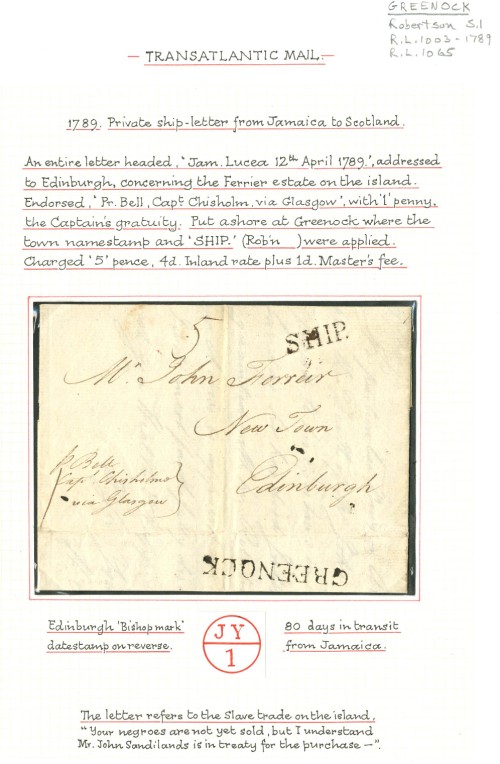 GREENOCK
Robertson S.1
R.L.1003-1789
R.L.1065
— TRANSATLANTIC MAIL. —
1789. Private ship-letter from Jamaica to Scotland.
An entire letter headed, 'Jam. Lucea 12th April 1789.', addressed
to Edinburgh, concerning the Ferrier estate on the island.
Endorsed, 'Pr. Bell, Capt Chisholm, via Glasgow', with '1' penny,
the Captain's gratuity. Put ashore at Greenock where the
town namestamp and 'SHIP.' (Rob'n ) were applied.
Charged '5' pence, 4d. Inland rate plus 1d. Master's fee.
5
SHIP.
Mr John Ferrier
New Town
Edinburgh
p Bell
Capt Chisholme
via Glasgow
GREENOCK
Edinburgh 'Bishop mark'
datestamp on reverse.
JY
1
80 days in transit
from Jamaica.
The letter refers to the Slave trade on the island,
"Your negroes are not yet sold, but I understand
Mr. John Sandilands is in treaty for the purchase —".